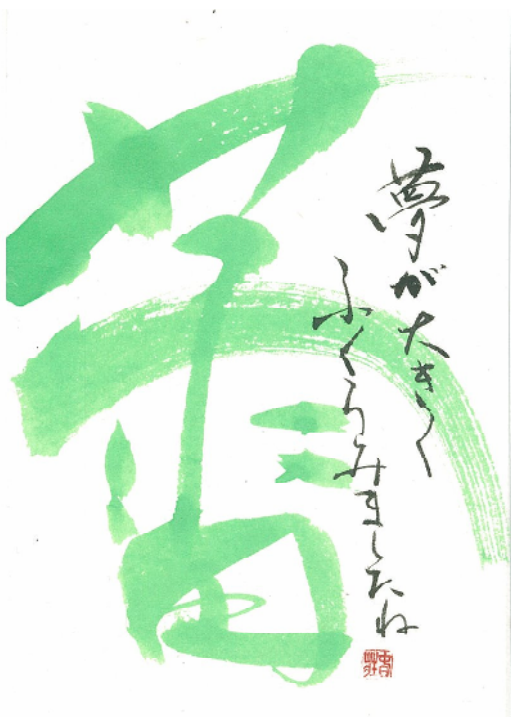 蕾
夢が大きく
ふくらみましたね